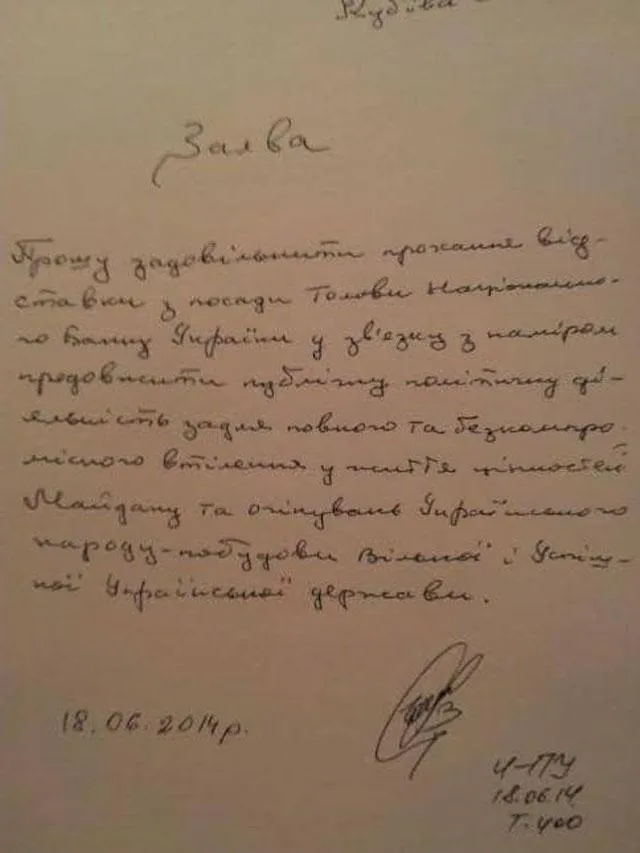 Кубіва
Заява
Прошу задовільнити прохання від-
ставки з посади Голови Національно-
го банку України у зв'язку з наміром
продовжити публічну політичну ді-
яльність задля повного та безкомпро-
місного втілення у життя цінностей
Майдану та очікувань Українського
народу-побудови Вільної і Успіш-
ної Української держави.
18.06.2014р.
18.06.14